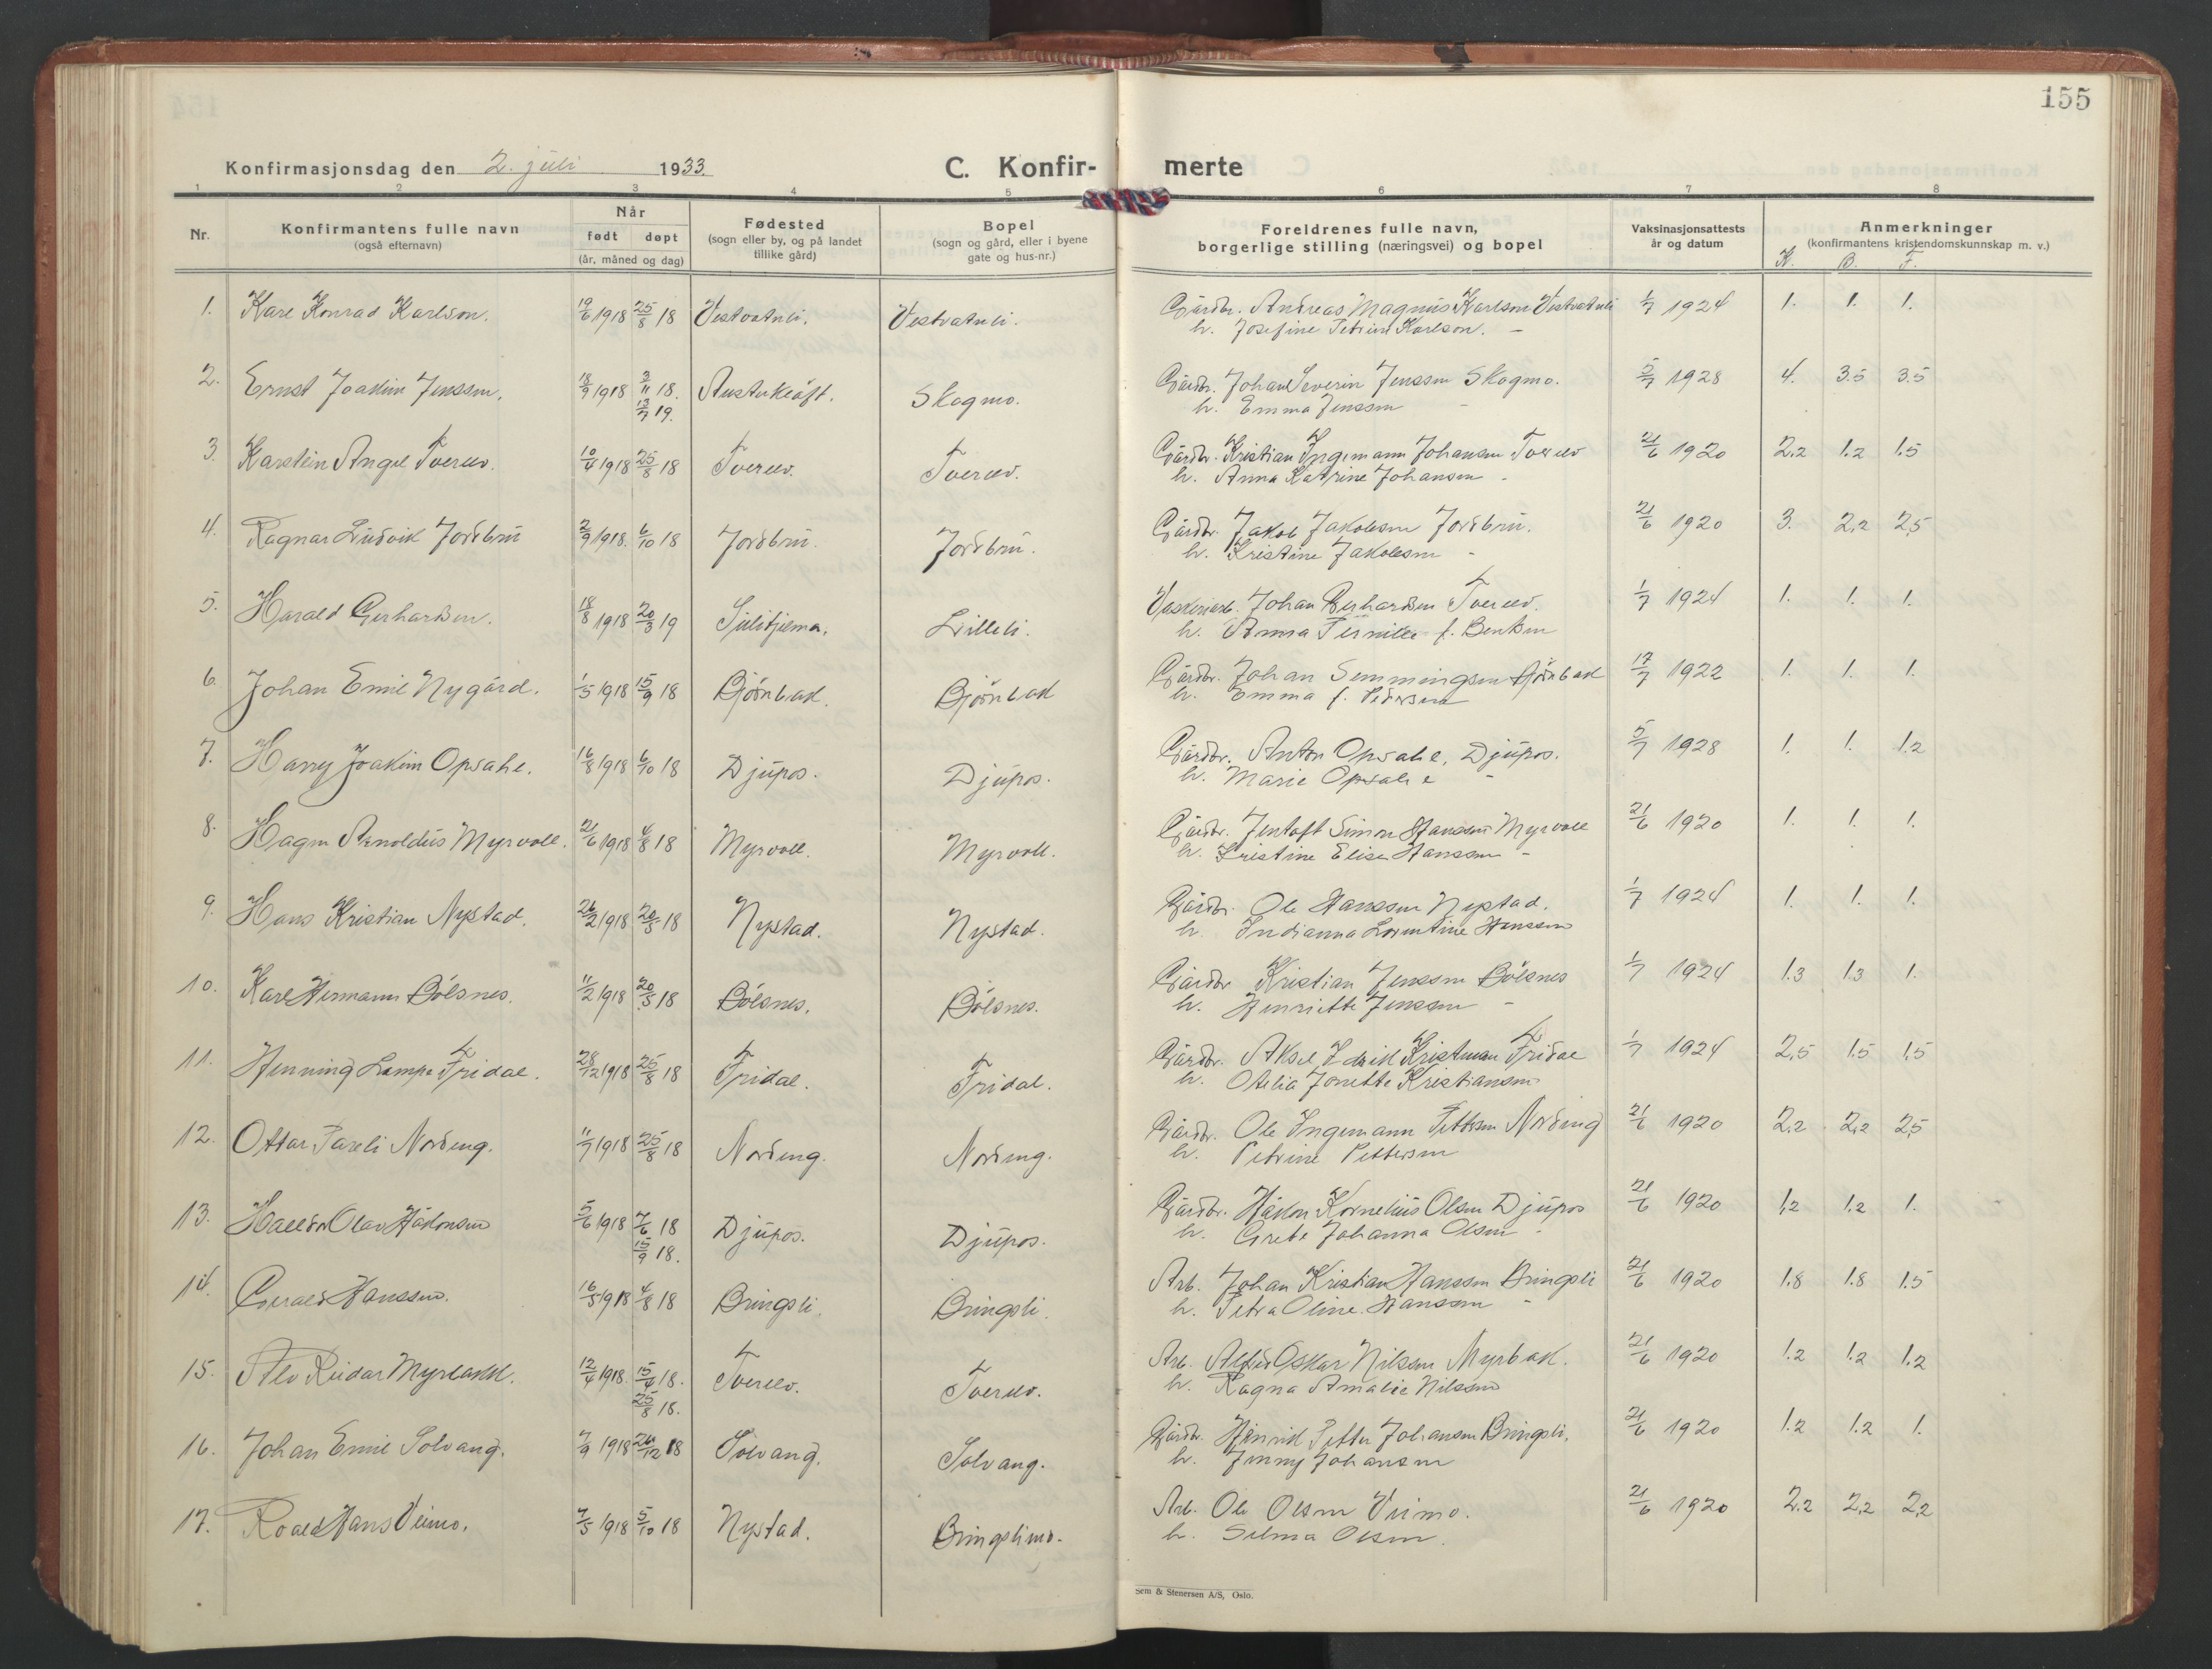 155
Konfirmasjonsdag den 2. juli 1933.
C. Konfir- merte
1 2 3 4 5 6 7 8
Nr. Konfirmantens fulle navn (også efternavn) Når født døpt (år, måned og dag) Fødested (sogn eller by, og på landet tillike gård) Bopel (sogn og gård, eller i byene gate og hus-nr.) Foreldrenes fulle navn, borgerlige stilling (næringsvei) og bopel Vaksinasjonsattests år og datum Anmerkninger (konfirmantens kristendomskunnskap m. v.)
K. B. F.
1. Karl Konrad Karlson. 19/6 1918 25/8 18 Vestvatnli. Vestvatnli. Gårdbr. Andreas Magnus Karlson Vestvatnli 1/7 1924 1. 1. 1.
h. Josefine Petrine Karlson. -
2. Ernst Joakim Jenssen. 18/9 1918 3/11 18. 13/7 19. Skogmo. Gårdbr. Johan Severin Jenssen Skogmo. 5/7 1928 4. 3.5 3.5
h. Emma Jenssen -
3. Karstein Angel Tverelv. 10/4 1918 25/8 18 Tverelv. Tverelv. Gårdbr. Kristian Ingemann Johansen Tverelv 21/6 1920 2.2 1.2 1.5
h. Anna Katrine Johansen -
4. Ragnar Ludvik Jordbru 2/9 1918. 6/10 18 Jordbru. Jordbru. Gårdbr. Jakob Jakobsen Jordbru. 21/6 1920 3. 2.2 2,5
h. Kristine Jakobsen -
5. Harald Gerhardsen. 18/8 1918 20/3 19 Sulitjelma. Lilleli. Johan Gerhardsen Tverelv. 1/7 1924 1. 1. 1.
h. Anna Pernille f. Bentsen
6. Johan Emil Nygård. 1/5 1918 15/9 18 Bjørnbak. Bjørnbak Gårdbr. Johan Semmingsen Bjørnbak 17/7 1922 1. 1. 1.
h. Emma f. Pedersen
7. Harry Joakim Opsahl. 16/8 1918 6/10 18 Djupos. Djupos. Gårdbr. Anton Opsahl, Djupos. 5/7 1928 1. 1. 1.2
h. Marie Opsahl -
8. Hagen Arnoldus Myrvoll. 21/6 1918 4/8 18 Myrvoll. Myrvoll. Gårdbr. Jentoft Simon Hanssen Myrvoll 21/6 1920 1. 1. 1.
h. Kristine Elise Hanssen -
9. Hans Kristian Nystad. 26/2 1918 20/5 18 Nystad. Nystad. Gårdbr. Ole Hanssen Nystad. 1/7 1924 1. 1. 1.
h. Indianna Lorentine Hanssen
10. Karl Hermann Bølsnes. 11/2 1918 20/5 18 Bølsnes. Bølsnes. Gårdbr Kristian Jenssen Bølsnes 1/7 1924 1.3 1.3 1.
h. Henriette Jenssen -
11. Henning Lampe Fridal. 28/12 1918 25/8 18 Fridal. Fridal. Gårdbr. Aksel Edvik Kristensen Fridal 1/7 1924 2,5 1.5 1,5
h. Otelia Jonette Kristiansen
12. Ottar Pareli Nordeng. 11/7 1918 25/8 18 Nordeng. Nordeng. Gårdbr. Ole Ingemann Pettersen Nordeng 21/6 1920 2.2 2.2 2,5
h. Petrine Pettersen
13. Halldor Olav Håkonsen 5/6 1918 7/6 18 15/9 18. Djupos. Djupos. Gårdbr. Håkon Kornelius Olsen Djupos 21/6 1920 1,2 1.2 1.
h. Grete Johanna Olsen -
14. Hanssen. 16/5 1918 4/8 18 Bringsli. Bringsli. Arb. Johan Kristian Hanssen Bringsli 21/6 1920 1.8 1.8 1.5
h. Petra Oline Hanssen -
15. Alv Reidar Myrbakk. 12/4 1918. 15/4 18. 25/8 18. Tverelv. Tverelv. Arb. Alfred Oskar Nilssen Myrbak. 21/6 1920 1.2 1.2 1.2
h. Ragna Amalie Nilssen
16. Johan Emil Solvang. 7/9 1918 26/12 18 Solvang. Solvang. Gårdbr. Henrik Petter Johansen Bringsli. 21/6 1920 1.2 1.2 1.
h. Jenny Johansen
17. Roald Hans Veimo. 7/5 1918 5/10 18 Nystad. Bringslimo. Arb. Ole Olsen Veimo. 21/6 1920 2.2 2,2 2,2
h. Selma Olsen.
Sem & Stenersen A/S, Oslo.